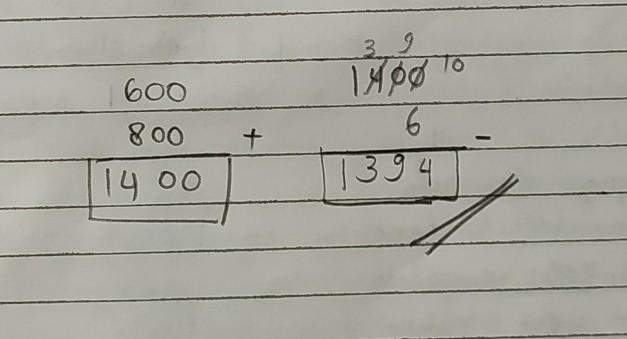 600
800 +
1400
3 9
1400 10
6 -
1394